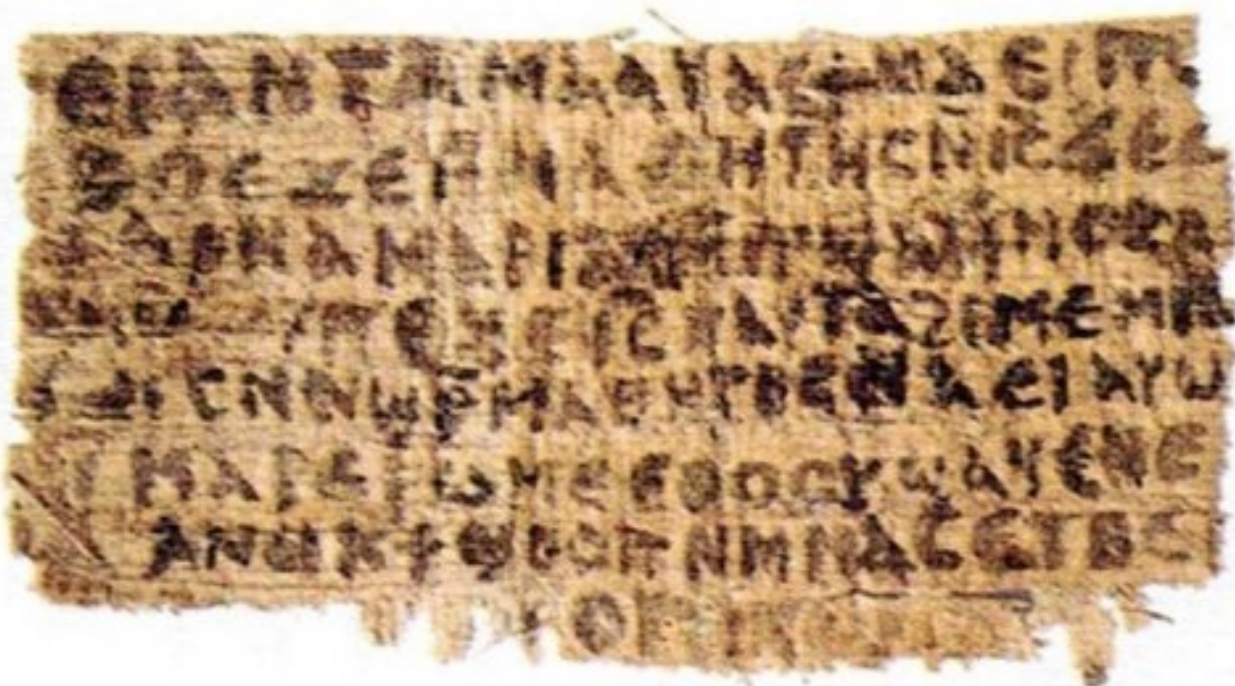 ⲉⲓ ⲁⲛ ⲧⲁⲙⲁⲁⲩ ⲁⲥϯ ⲛⲁⲉⲓ ⲡⲱ
ⲡⲉϫⲉ ⲙⲙⲁⲑⲏⲧⲏⲥ ⲛⲓⲥ ϫⲉ
ⲁⲣⲛⲁ ⲙⲁⲣⲓⲁⲙ ⲙⲡϣⲁ ⲙⲙⲟⲥ ⲁ
ⲡⲉϫⲉ ⲓⲥ ⲛⲁⲩ ⲧⲁϩⲓⲙⲉ ⲙⲛ
ⲥⲛⲁϣⲣⲙⲁⲑⲏⲧⲏⲥ ⲛⲁⲉⲓ ⲁⲩⲱ
ⲙⲁⲣⲉ ⲣⲱⲙⲉ ⲉⲑⲟⲟⲩ ϣⲁϥⲉ ⲛⲉ
ⲁⲛⲟⲕ ϯϣⲟⲟⲡ ⲛⲙⲙⲁⲥ ⲉⲧⲃⲉ